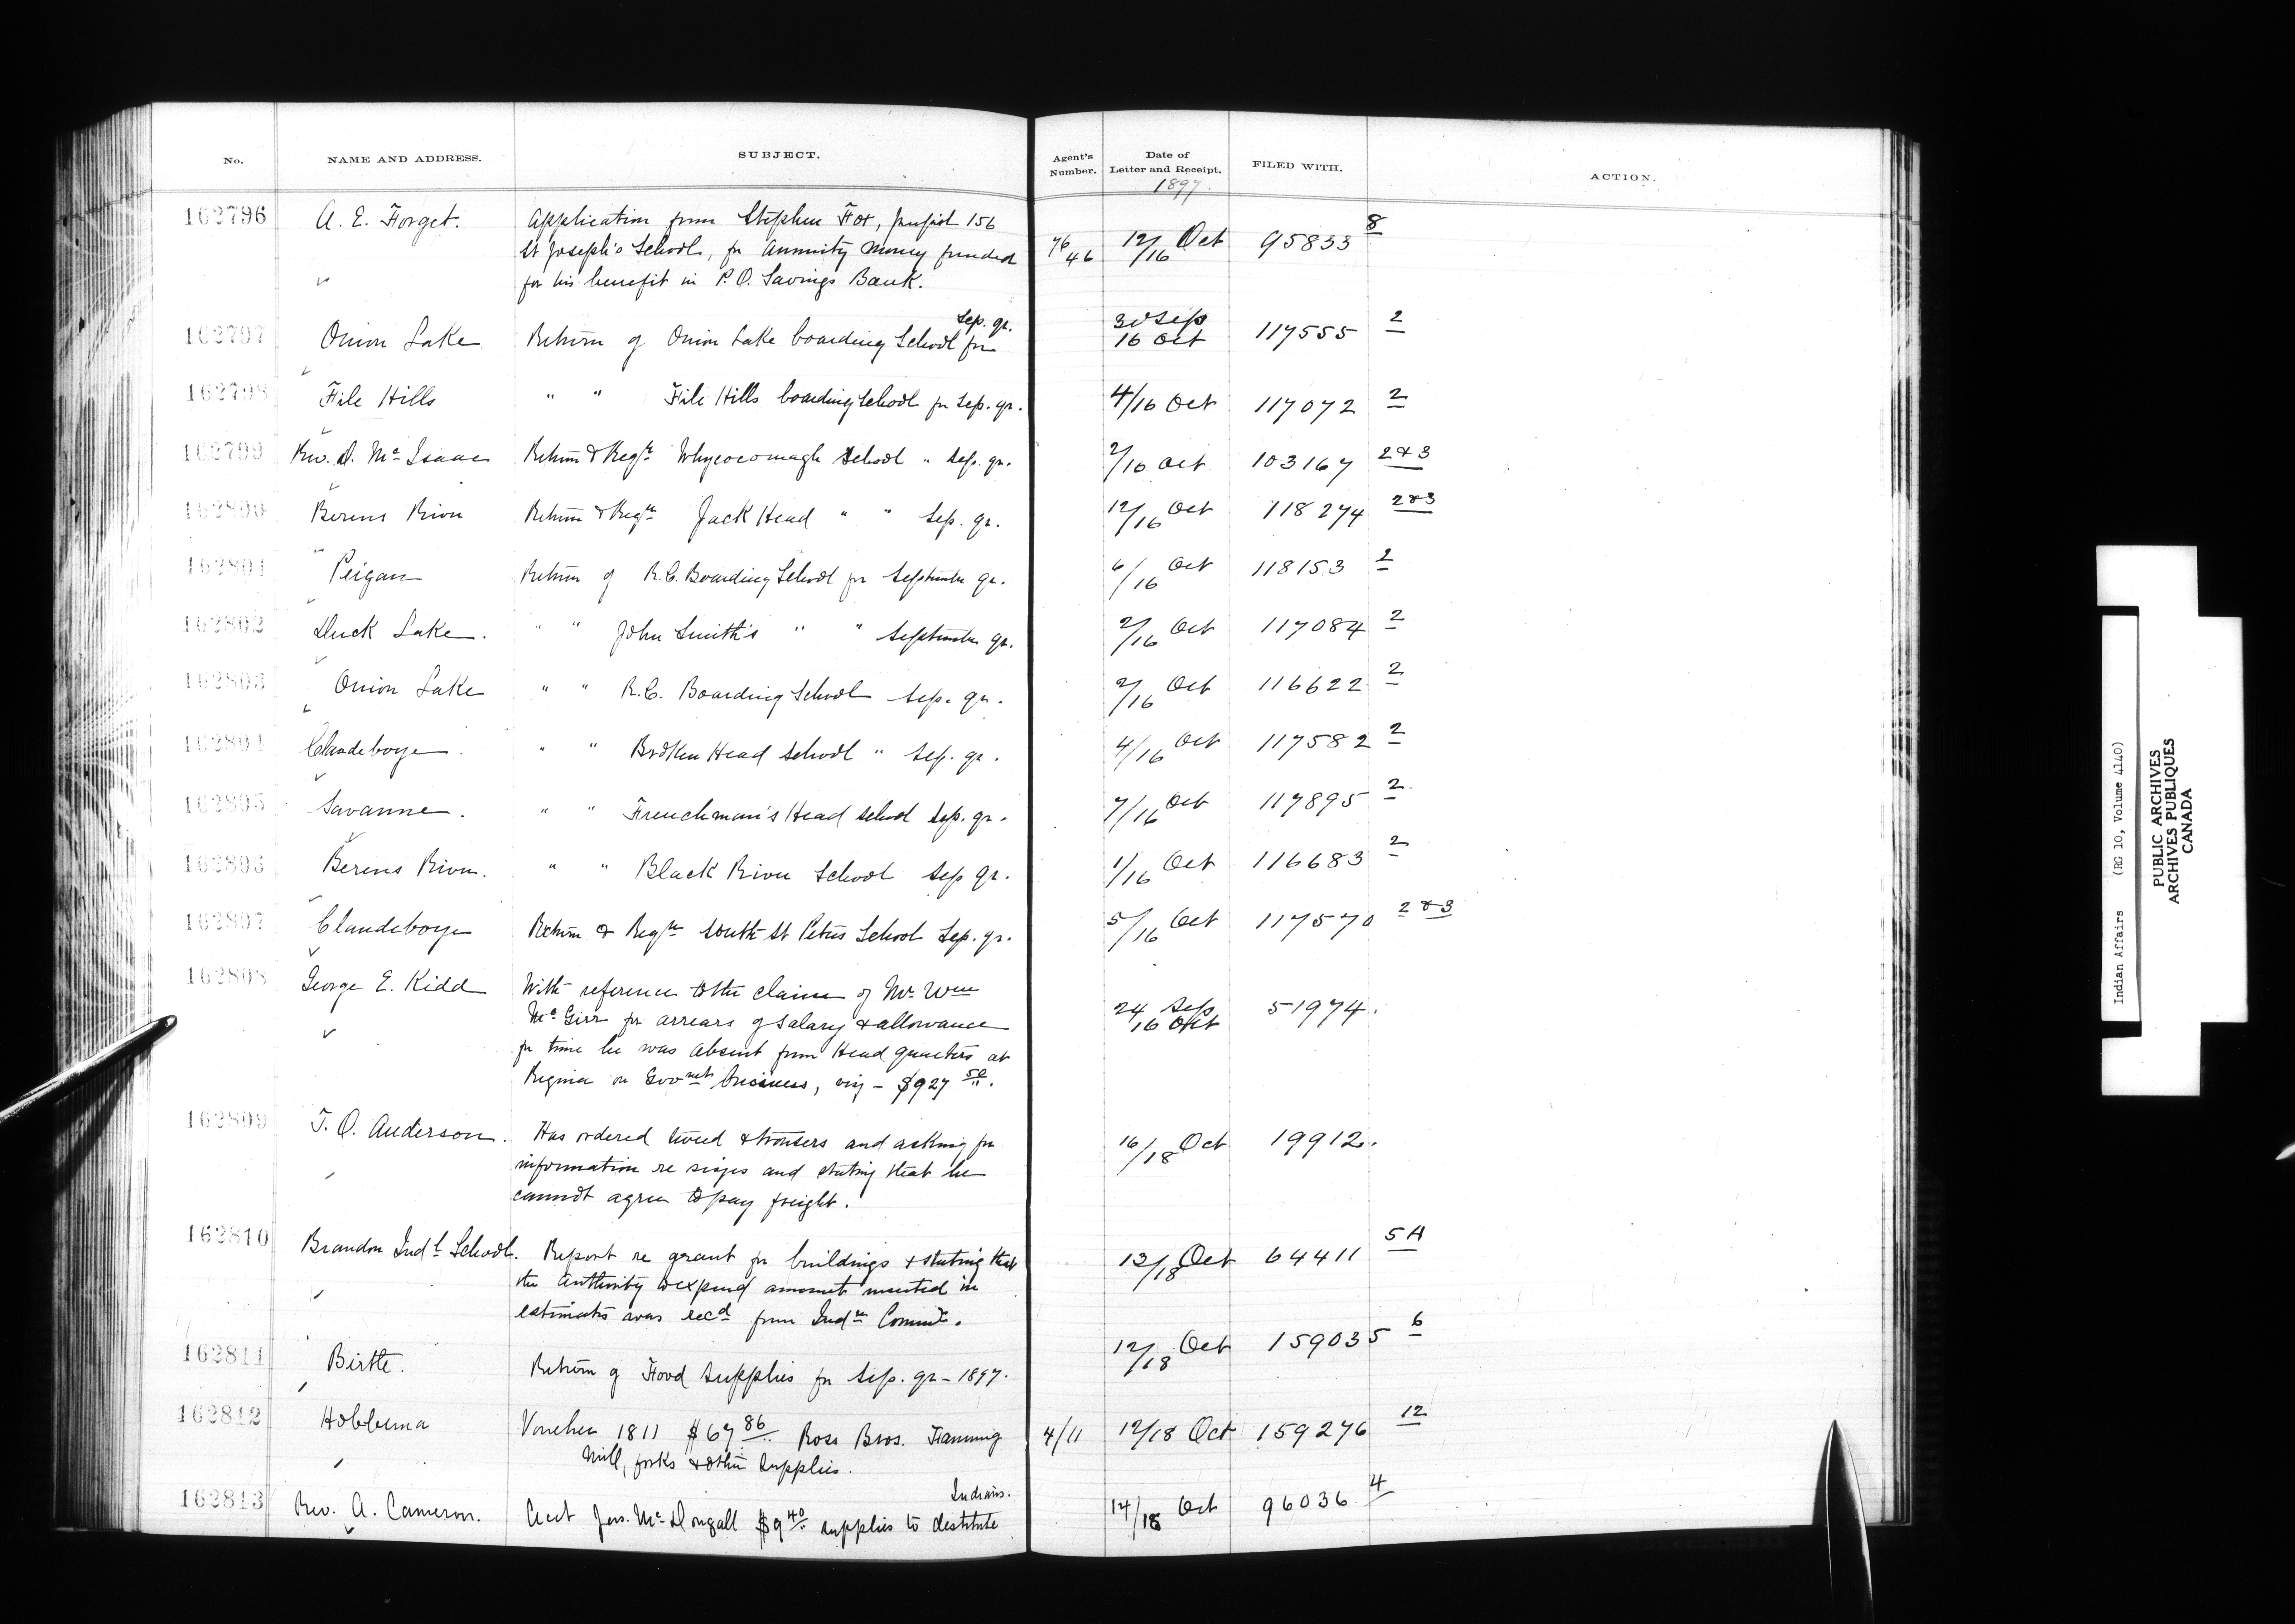 No. NAME AND ADDRESS. SUBJECT. Agent's Number. Date of Letter and Receipt. FILED WITH. ACTION.
1897.
162796 A. E. Forget. Application from Stephen Fox, pupil 156 76/46 12/16 Oct 95833 8
St Joseph's School, for annuity money funded
for his benefit in P.O. Savings Bank.
162797 Onion Lake Return of Onion Lake boarding School for Sep. qr. 30 Sep 16 Oct 117555 2
162798 File Hills " " File Hills boarding school for Sep. qr. 4/16 Oct 117072 2
162799 Rev. D. McIsaac Return & Regr Whycocomagh School " Sep. qr. 2/16 Oct 103167 2 & 3
162800 Berens River Return & Regr Jack Head " " Sep. qr. 12/16 Oct 118274 2 & 3
162801 Peigan Return of R.C. Boarding School for September qr. 6/16 Oct 118153 2
162802 Duck Lake. " " John Smith's " " September qr. 2/16 Oct 117084 2
162803 Onion Lake " " R.C. Boarding School Sep. qr. 2/16 Oct 116622 2
162804 Clandeboye. " " Broken Head School " Sep. qr. 4/16 Oct 117582 2
162805 Savanne. " " Frenchman's Head School Sep. qr. 7/16 Oct 117895 2
162806 Berens River. " " Black River School Sep qr. 1/16 Oct 116683 2
162807 Clandeboye Return & Regr South St Peters School Sep. qr. 5/16 Oct 117570 2 & 3
162808 George E. Kidd With reference to the claim of Mr Wm 24 Sep 16 Oct 51974.
McGirr for arrears of salary & allowance
for time he was absent from Head quarters at
Regina on Govmt business, viz - $927 50.
162809 T. O. Anderson. Has ordered tweed & trousers and asking for 16/18 Oct 19912.
information re sizes and stating that he
cannot agree to pay freight.
162810 Brandon Indl School. Report re grant for buildings & stating that 13/18 Oct 64411 5A
the authority to expend amount inserted in
estimates was recd from Indn Commr.
162811 Birtle. Return of Food Supplies for Sep. qr - 1897. 12/18 Oct 159035 6
162812 Hobbema Voucher 1811 $67 86 Ross Bros. Fanning 4/11 12/18 Oct 159276 12
Mill, forks & other supplies.
162813 Rev. A. Cameron. Acct Jos. McDougall $9 40 supplies to destitute Indians. 14/18 Oct 96036 4
Indian Affairs (RG 10, Volume 4140)
PUBLIC ARCHIVES
ARCHIVES PUBLIQUES
CANADA